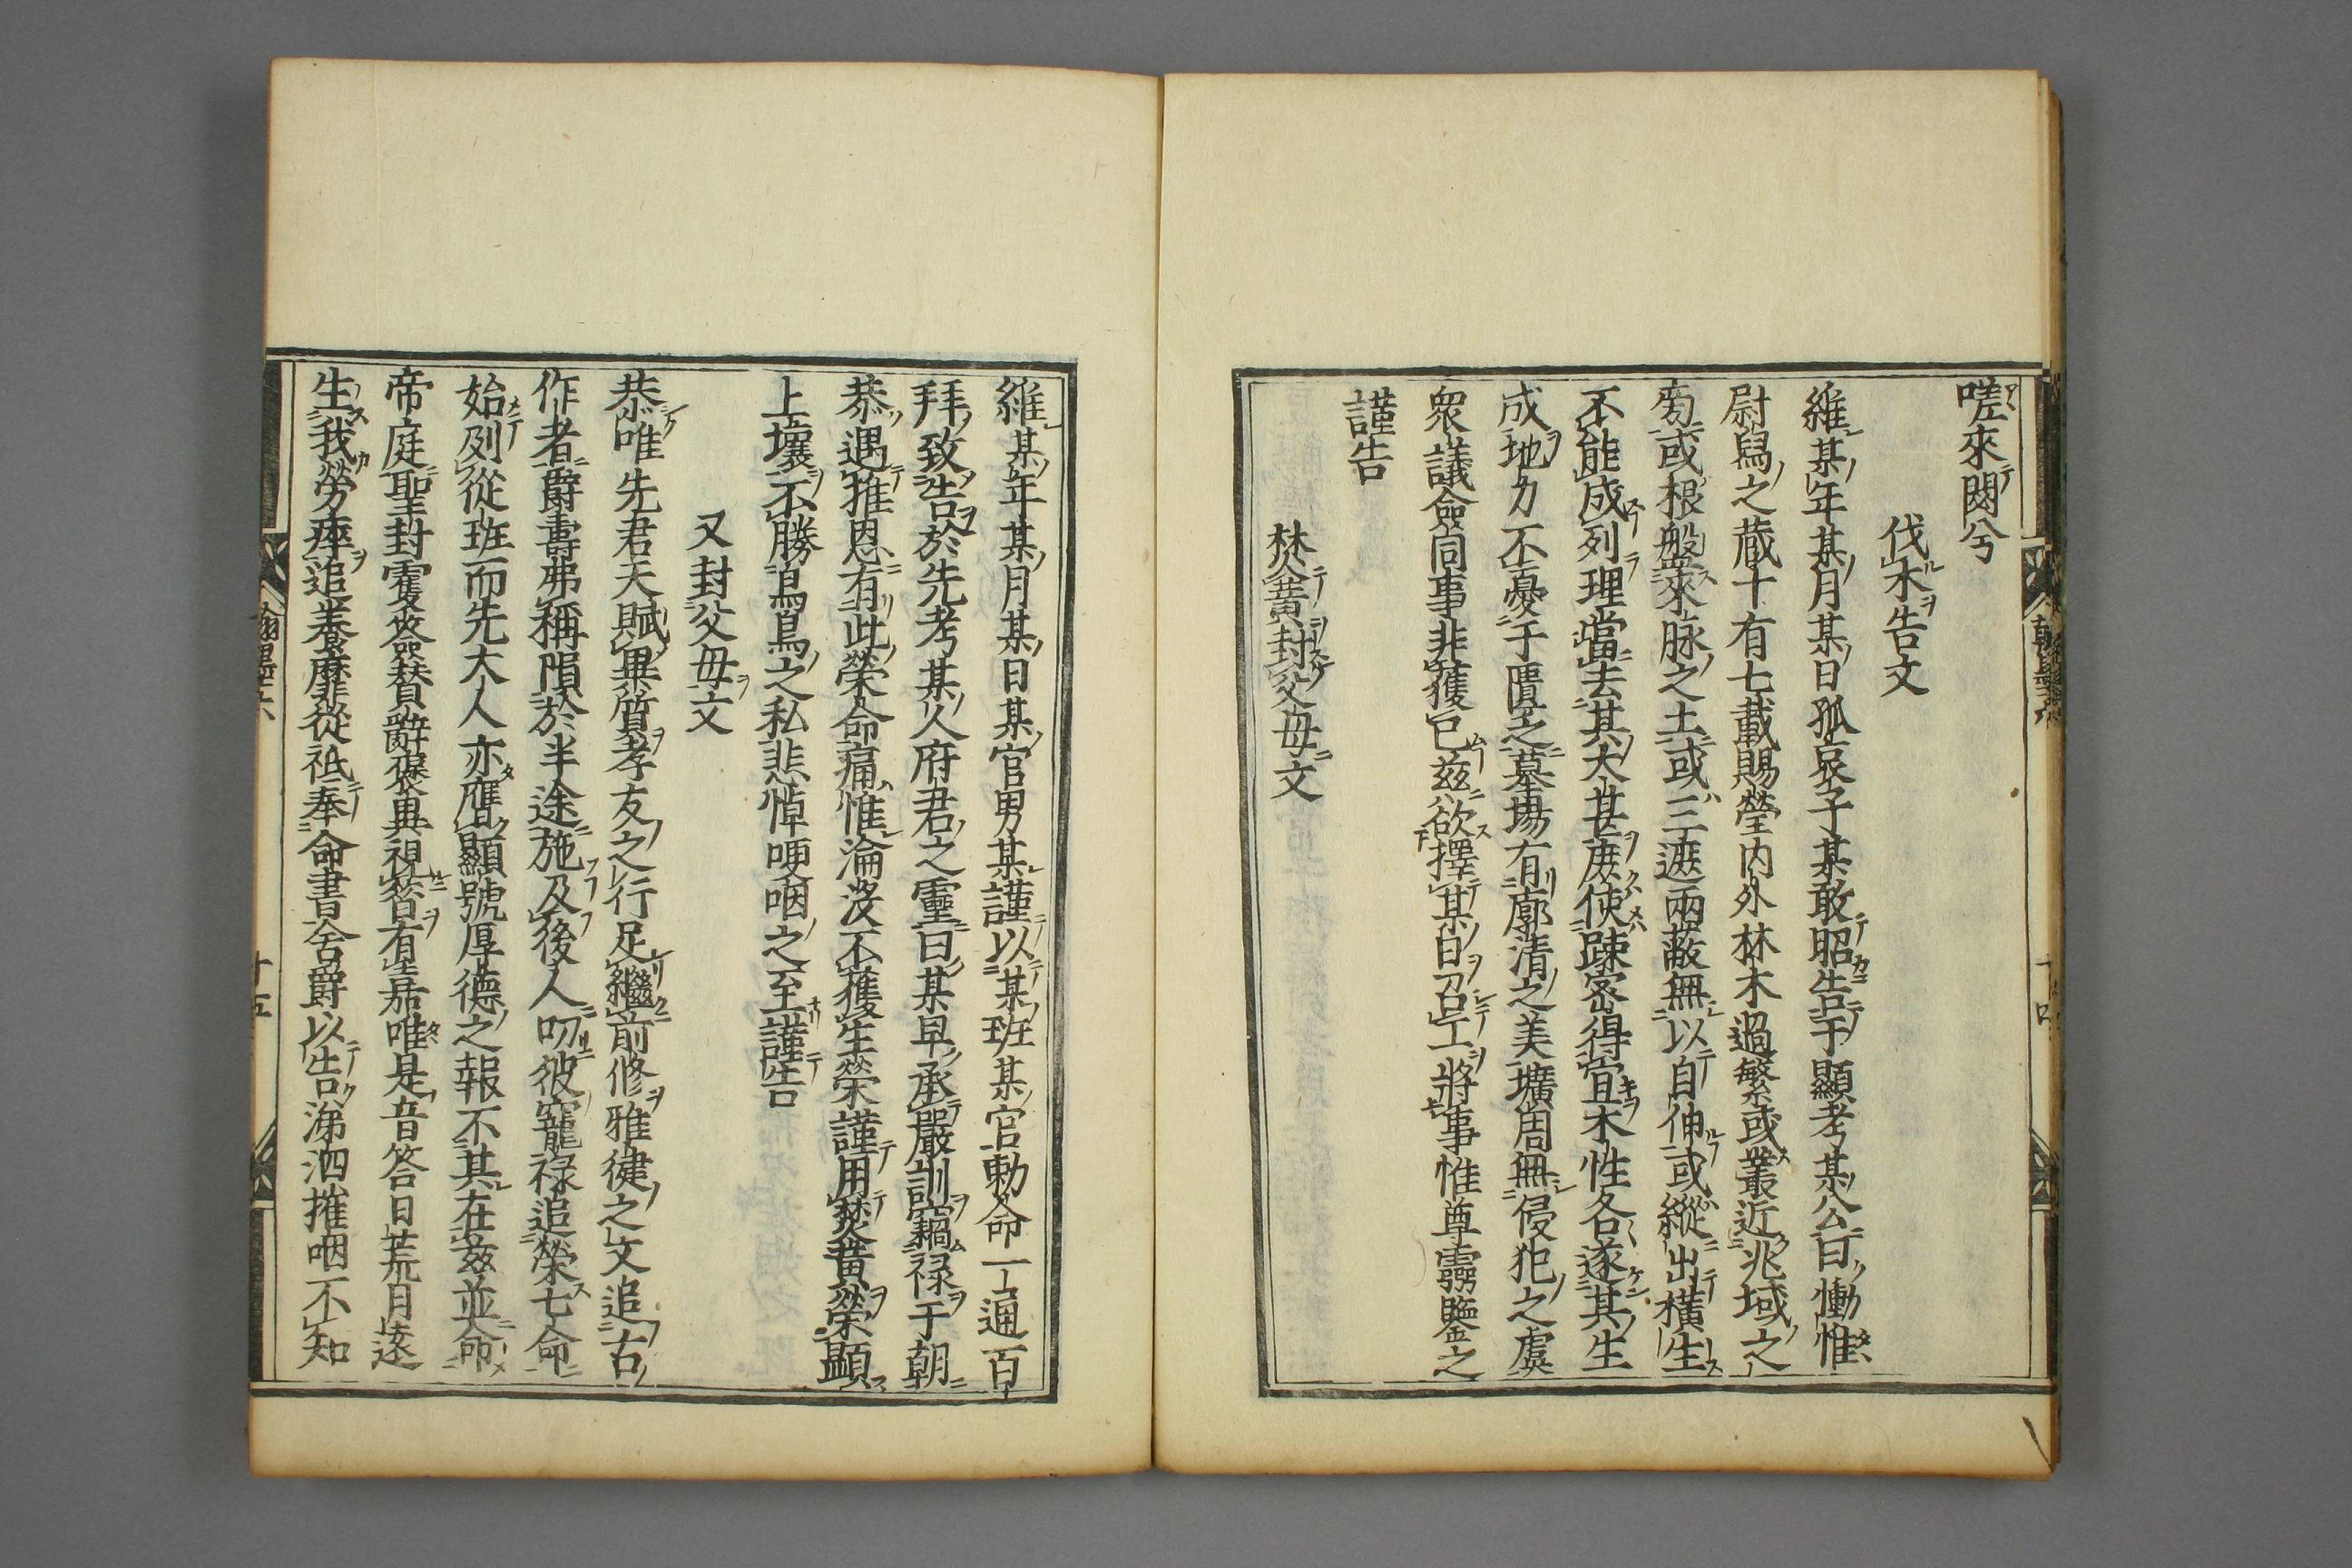 嗟來閔兮
伐木告文
維某年某月某日孤哀子某敢昭告于顯考某公曰慟惟
尉舄之蔵十有七載賜塋内外林木過繁或叢近兆域之
旁或根盤來脉之土或三遮兩蔽無以自伸或縱出横生
不能成列理當去其太甚庻使踈密得宜木性各遂其生
成地力不憂于匱乏墓場有廓清之美壙周無侵犯之虞
衆議僉同事非獲已茲欲擇某日召工將事惟尊靈鑒之
謹告
焚黄封父母文
維某年某月某日某官男某謹以某班某官勅命一通百
拜致告於先考某公府君之靈曰某早承嚴訓竊禄于朝
恭遇推恩有此榮命痛惟淪沒不獲生榮謹用焚黄榮顯
上壤不勝烏鳥之私悲悼哽咽之至謹告
又封父母文
恭唯先君天賦異質孝友之行足繼前修雅健之文追古
作者爵壽弗稱隕於半途施及後人叨彼寵禄追榮七命
始列從班而先大人亦膺顯號厚德之報不其在茲並命
帝庭聖封霍 贊辭褒典視答有嘉唯是音容日荒月遠
生我勞瘁追養靡從祗奉命書舍爵以告涕泗摧咽不知
翰墨六
十五